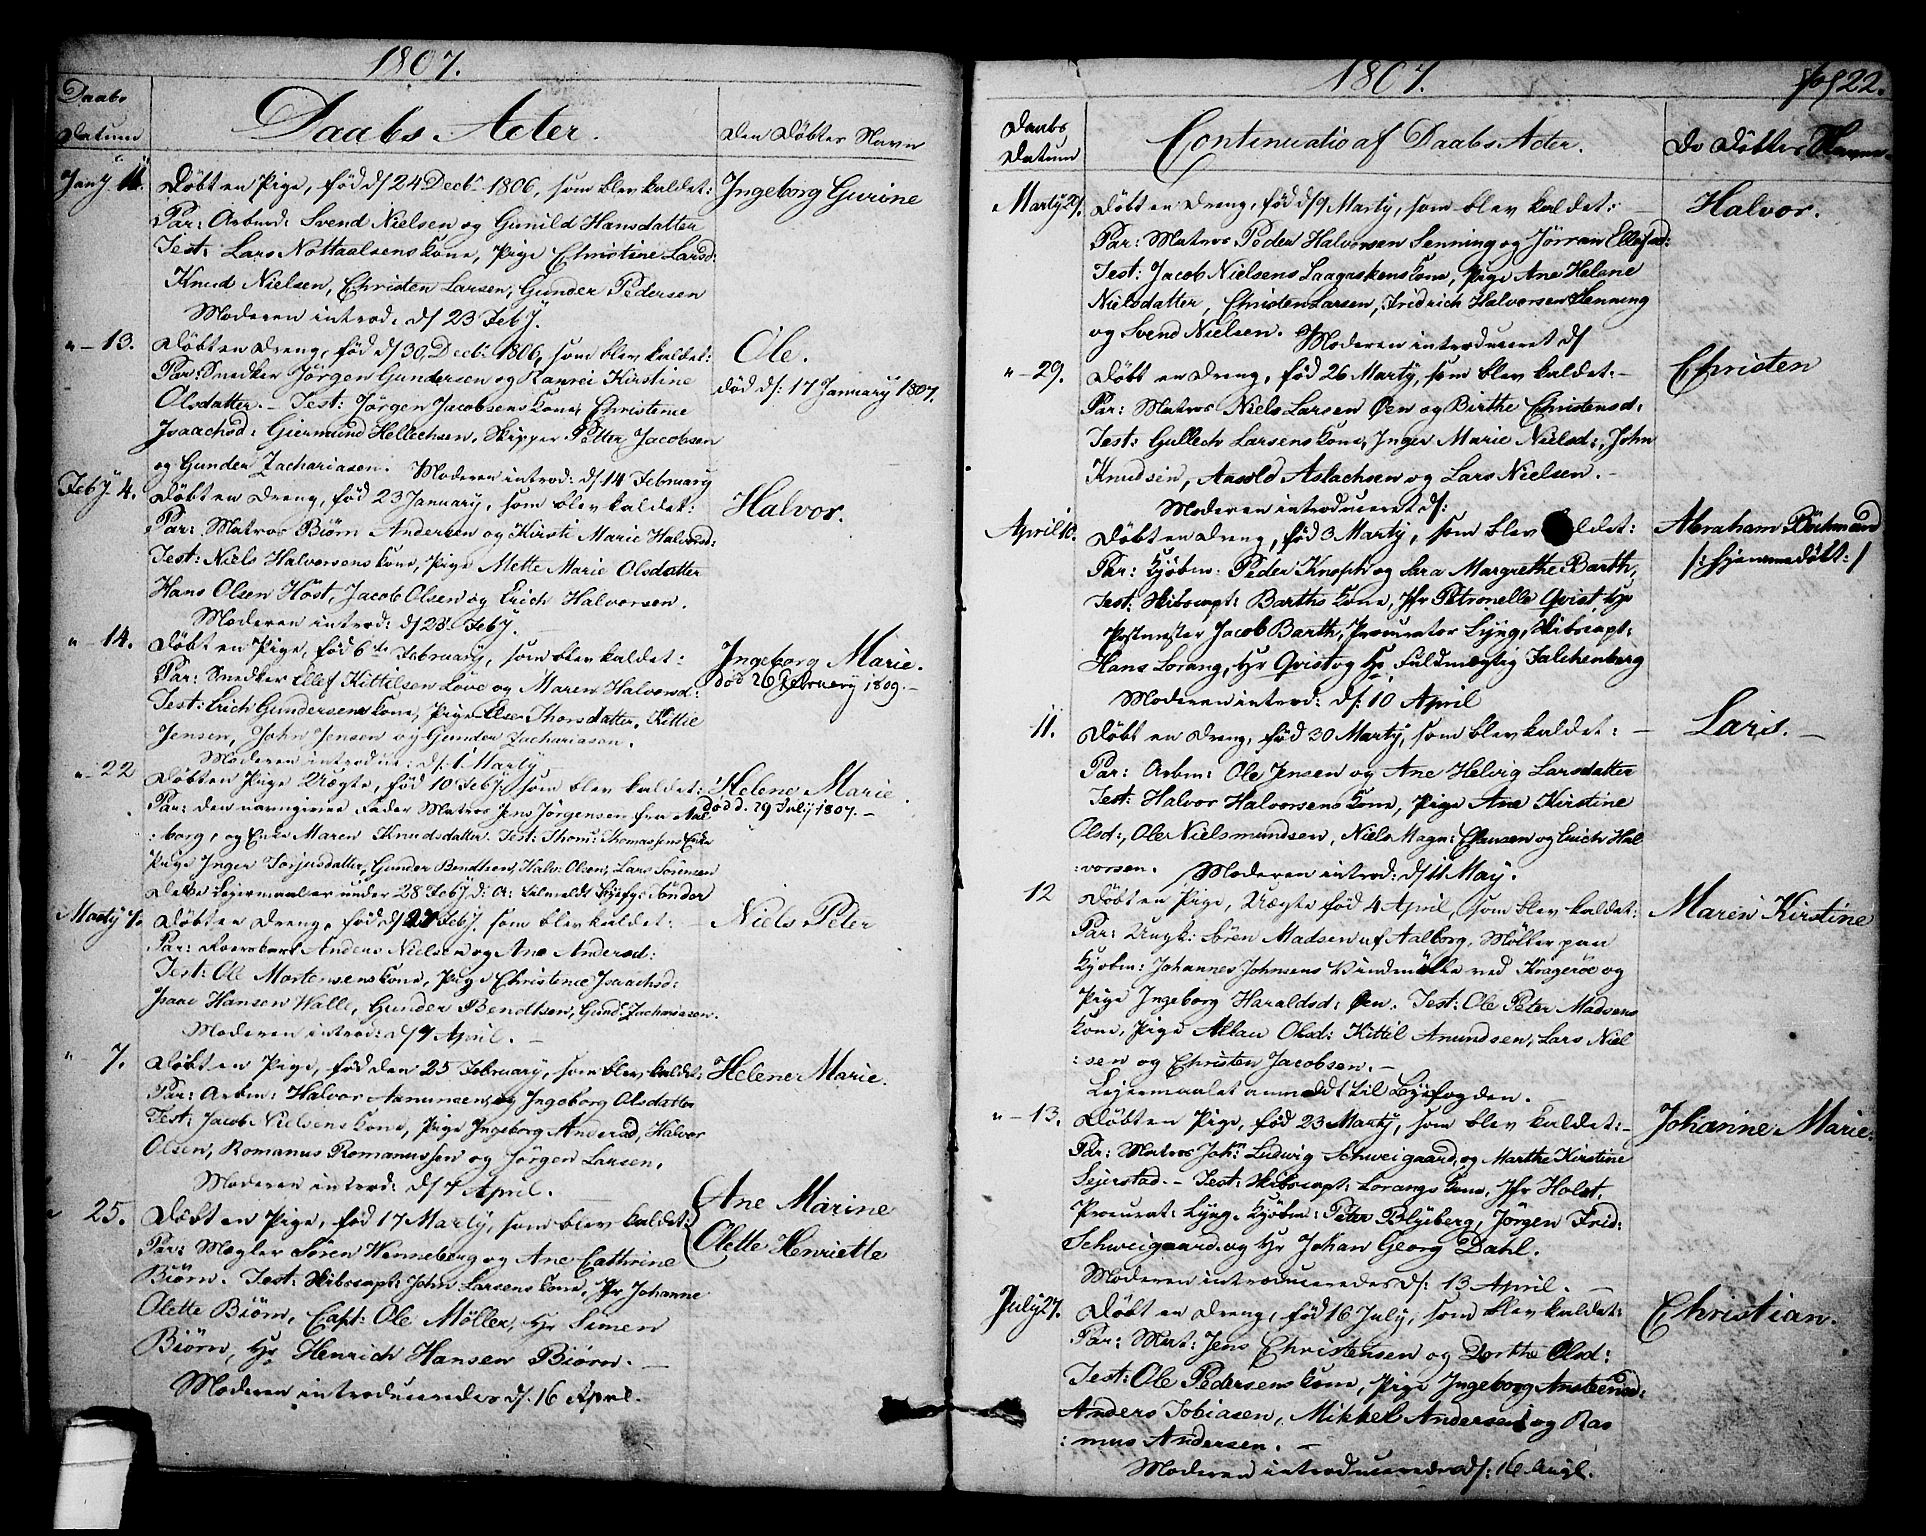 1807.
Daabs Datum
Daabs Acter.
Den Döbtes Navn
Jany 11.
Döbt en Pige, föd d/ 24 Decbr 1806, som blev kaldet:
Ingeborg Gurine
Par: Arbmd: Svend Nielsen og Gunild Hansdatter
Test: Lars Nottaelsens Kone, Pige Christine Larsd
Knud Nielsen, Christen Larsen, Gunder Pedersen
Moderen introd. d/ 23 Feby.
" - 13.
Döbt en Dreng, föd d/ 30 Decbr 1806, som blev kaldet:
Ole.
död d/: 17 January 1807.
Par: Snedker Jörgen Gundersen og Kirstine
Olsdatter. - Test: Jörgen Jacobsens Kone, Christence
Isaachsd: Giermund Hellechsen, Skipper Petter Jacobsen
og Gunder Zachariasen. Moderen introd: d/ 14 February
Feby. 4.
Döbt en Dreng, föd 23 January, som blev kaldet:
Halvor.
Par: Matros Biörn Andersen og Kirsti Marie Halvorsd:
Test: Niels Halvorsens Kone, Pige Mette Marie Olsdatter
Hans Olsen Höst, Jacob Olsen og Erich Halvorsen.
Moderen introd: d/ 28 Feby.
" 14.
Döbt en Pige, föd 6te February, som blev kaldet:
Ingeborg Marie.
död 26 February 1809.-
Par: Snedker Ellef Kittilsen Löve og Maren Halvorsd:
Test: Erich Gundersens Kone, Pige Else Thorsdatter, Kittil
Jensen, John Jensen og Gunder Zachariasen.
Moderen introduc: d/: 1 Marty
" - 22
Döbt en Pige Uægte, föd 10 Feby: som blev kaldet:
Helene Marie.
död d. 29 July 1807. -
Par: den navngivne Fader Matros Jens Jörgensen fra Aal
:borg, og Enke Maren Knudsdatter. Test: Thom: Thomassens Enke
Pige Inger Torjersdatter, Gunder Bendtsen, Halv: Olsen, Lars Sörensen
Dette Leiermaal er under 28 Feby d: A: tilmeldt Byefg: Sönder
Marty 7.
Döbt en Dreng, föd d/ 27 Feby. som blev kaldet: -
Niels Peter
Par: Roersbert Anders Nielsen og Ane Andersd:
Test: Ole Mortensens Kone, Pige Christence Isaachsd:
Isaac Hansen Walle, Gunder Bendtsen, Gund: Zachariasen.
Moderen introd: d/ 9 April. -
" 7.
Döbt en Pige, föd den 25 February, som blev kaldet:
Helene Marie.
Par: Arbm: Halvor Aanunsen, og Ingeborg Olsdatter
Test: Jacob Nielsens Kone, Pige Ingeborg Andersd, Halvor
Olsen, Romanus Romanussen og Jörgen Larsen.
Moderen introd: d/ 7 April.
" 25.
Döbt en Pige, föd 17 Marty, som blev kaldet:
Ane Marine
Olette Henriette
Par: Mægler Sören Henneberg og Ane Cathrine
Biörn. Test: Skibscapt: John Larsens Kone, Jfr Johanne
Olette Biörn, Capt: Ole Möller, Hr Simen
Biörn, Hr Henrich Hansen Biörn. -
Moderen introduceredes d/. 16 April.
1807.
Pag 22.
Daabs Datum
Continuatio af Daabs Acter.
De Döbtes Navne
Marty 29.
Döbt en Dreng, föd d/ 9 Marty, som blev kaldet: -
Halvor.
Par: Matros Peder Halvorsen Henning og Jörran Ellefsd:
Test: Jacob Nielsens Laagaskens Kone, Pige Ane Helene
Nielsdatter, Christen Larsen, Fridrich Halvorsen Henning
og Svend Nielsen. Moderen introduceret d/
" - 29.
Döbt en Dreng, föd 26 Marty, som blev kaldet: -
Christen
Par: Matros Niels Larsen Öen og Birthe Christensd:
Test: Gullech Larsens Kone, Inger Marie Nielsd:, John
Knudsen, Aasold Aslachsen og Lars Nielsen. -
Moderen introduceret d/:
April 10.
Döbt en Dreng, föd 3 Marty, som blev kaldet:
Abraham
/: hjemmedöbt: /
Par: Kjöbm: Peder Knoph og Sara Margrethe Barth,
Test: Skibscapt: Barths Kone, Jfr Petronelle Qvist, Hr
Postmester Jacob Barth, Procurator Lyng, Skibscapt:
Hans Lorang, Hr Qvist og Hr Fuldmægtig Falchenberg
Moderen introd: d/: 10 April
11.
Döbt en Dreng, föd 30 Marty, som blev kaldet: -
Laris. -
Par: Arbm: Ole Jensen og Ane Helvig Larsdatter
Test: Halvor Halvorsens Kone, Pige Ane Kirstine
Olsd:, Ole Nielsmundsen, Niels Magn: Clausen og Erich Hal
:vorsen. Moderen introd: d/ 11 May.
12
Döbt en Pige, Uægte föd 4 April, som blev kaldet:
Maren Kirstine
Par: Ungk: Sören Madsen af Aalborg, Möller paa
Kjöbm: Johannes Johnsens Vindmölle ved Kragerøe og
Pige Ingeborg Haraldsd: Öen. Test: Ole Peter Madsens
Kone, Pige Allau Olsd: Kittil Amundsen, Lars Niel
:sen og Christen Jacobsen. -
Leiermaalet anmeldt til Byefogden.
" - 13.
Döbt en Pige, föd 23 Marty, som blev kaldet: -
Johanne Marie.
Par: Matros John Ludvig Schweigaard, og Marthe Kirstine
Sejerstad. - Test: Skibscapt: Lorangs Kone, Jfr Holst,
Procurat: Lyng, Kjöbm: Peter Blyberg, Jörgen Frid:
Schweigaard og Hr Johan Georg Dahl.
Moderen introduceredes d/: 13 April. -
July 27.
Döbt en Dreng, föd 16 July, som blev kaldet:
Christian.
Par: Mat: Jens Christensen og Dorthe Olsd:
Test: Ole Pedersens Kone, Pige Ingeborg Anstensd:
Anders Tobiasen, Mikkel Andersen og Ras
:mus Andersen. -
Moderen introduceredes d/: 16 Augl.